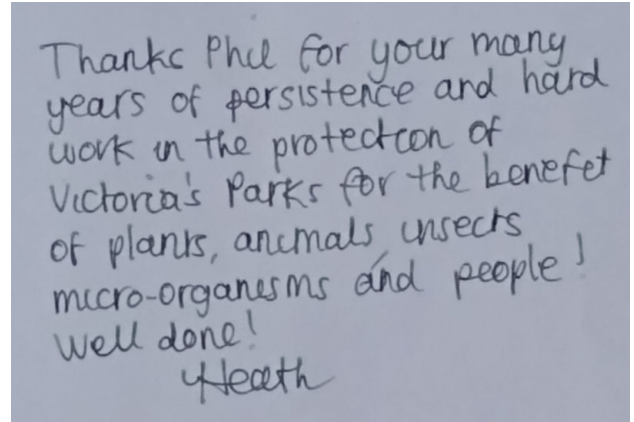 Thanks Phil for your many
years of persistence and hard
work in the protection of
Victoria's Parks for the benefit
of plants, animals, insects
micro-organisms and people!
Well done!
Heath